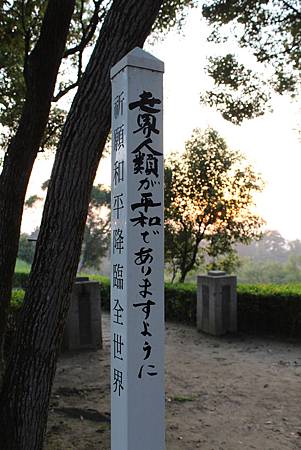 世界人類が平和でありますように
祈願和平降臨全世界